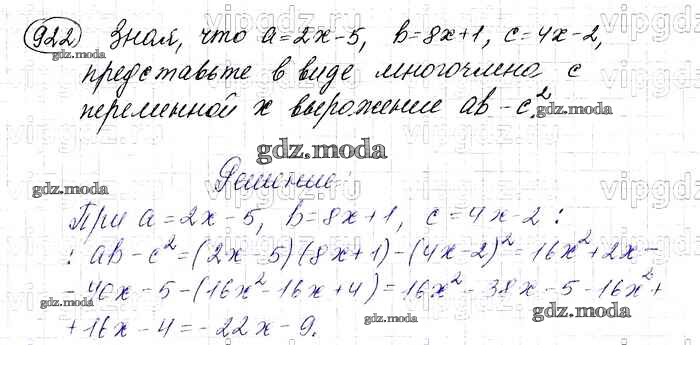 922 Зная, что a=2x-5, b=8x+1, c=4x-2,
представьте в виде многочлена с
переменной x выражение ab-c².
Решение:
При a=2x-5, b=8x+1, c=4x-2:
: ab-c²=(2x-5)(8x+1)-(4x-2)²=16x²+2x-
-40x-5-(16x²-16x+4)=16x²-38x-5-16x²+
+16x-4=-22x-9.
gdz.moda
gdz.moda
gdz.moda
gdz.moda
gdz.moda
gdz.moda
gdz.moda
gdz.moda
vipgdz.ru
vipgdz.ru
vipgdz.ru